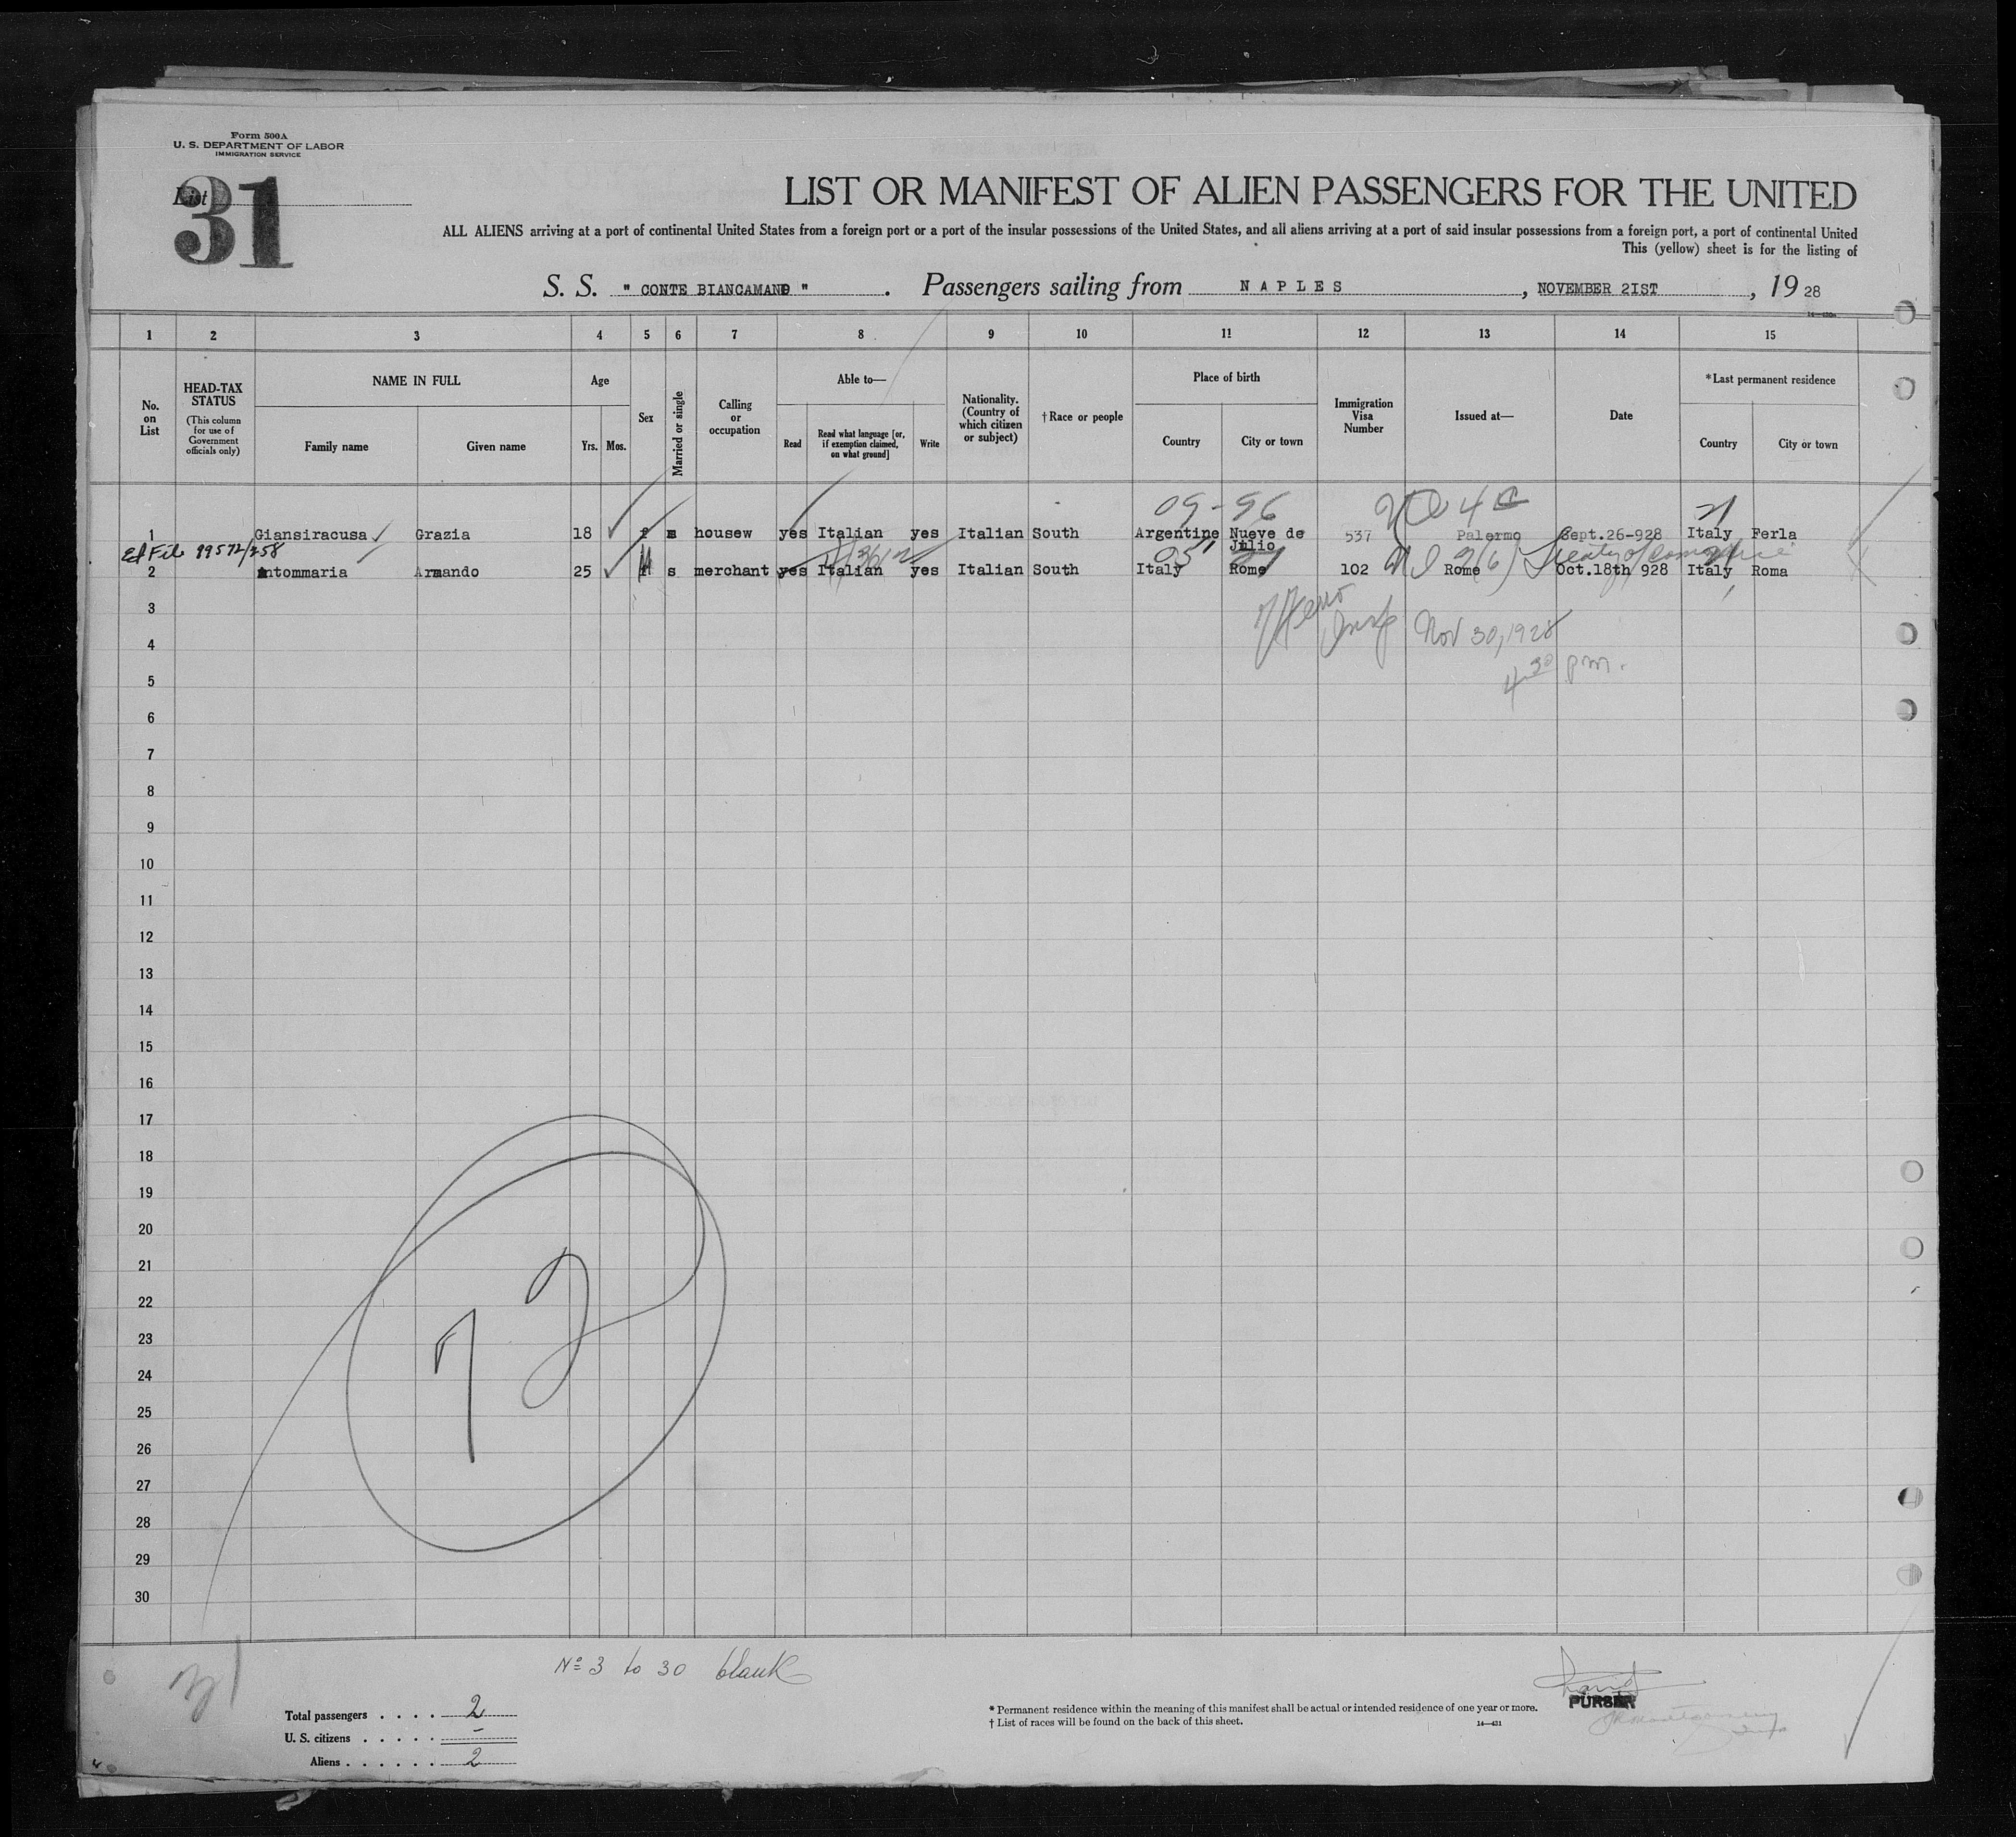 Form 500A
U. S. DEPARTMENT OF LABOR
IMMIGRATION SERVICE
List 31
LIST OR MANIFEST OF ALIEN PASSENGERS FOR THE UNITED
ALL ALIENS arriving at a port of continental United States from a foreign port or a port of the insular possessions of the United States, and all aliens arriving at a port of said insular possessions from a foreign port, a port of continental United
This (yellow) sheet is for the listing of
S. S. " CONTE BIANCAMANO " . Passengers sailing from NAPLES , NOVEMBER 21ST , 19 28
1 2 3 4 5 6 7 8 9 10 11 12 13 14 15
No. on List
HEAD-TAX STATUS (This column for use of Government officials only)
NAME IN FULL
Family name Given name
Age
Yrs. Mos.
Sex
Married or single
Calling or occupation
Able to—
Read Read what language [or, if exemption claimed, on what ground] Write
Nationality. (Country of which citizen or subject)
†Race or people
Place of birth
Country City or town
Immigration Visa Number
Issued at—
Date
*Last permanent residence
Country City or town
09-96 4 C 21
1 Giansiracusa Grazia 18 f m housew yes Italian yes Italian South Argentine Nueve de Julio 537 Palermo Sept.26-928 Italy Ferla
El File 99572/258
2 Antommaria Armando 25 M s merchant yes Italian yes Italian South Italy Rome 102 Rome Oct.18th 928 Italy Roma
Treaty of Commerce
3
Insp Nov 30, 1928
4
4 30 pm.
5
6
7
8
9
10
11
12
13
14
15
16
17
18
19
20
21
22
23
24
25
26
27
28
29
30
72
31
Nº 3 to 30 blank
Total passengers . . . . 2
U. S. citizens . . . . . –
Aliens . . . . . . 2
* Permanent residence within the meaning of this manifest shall be actual or intended residence of one year or more.
† List of races will be found on the back of this sheet.
14—431
PURSER